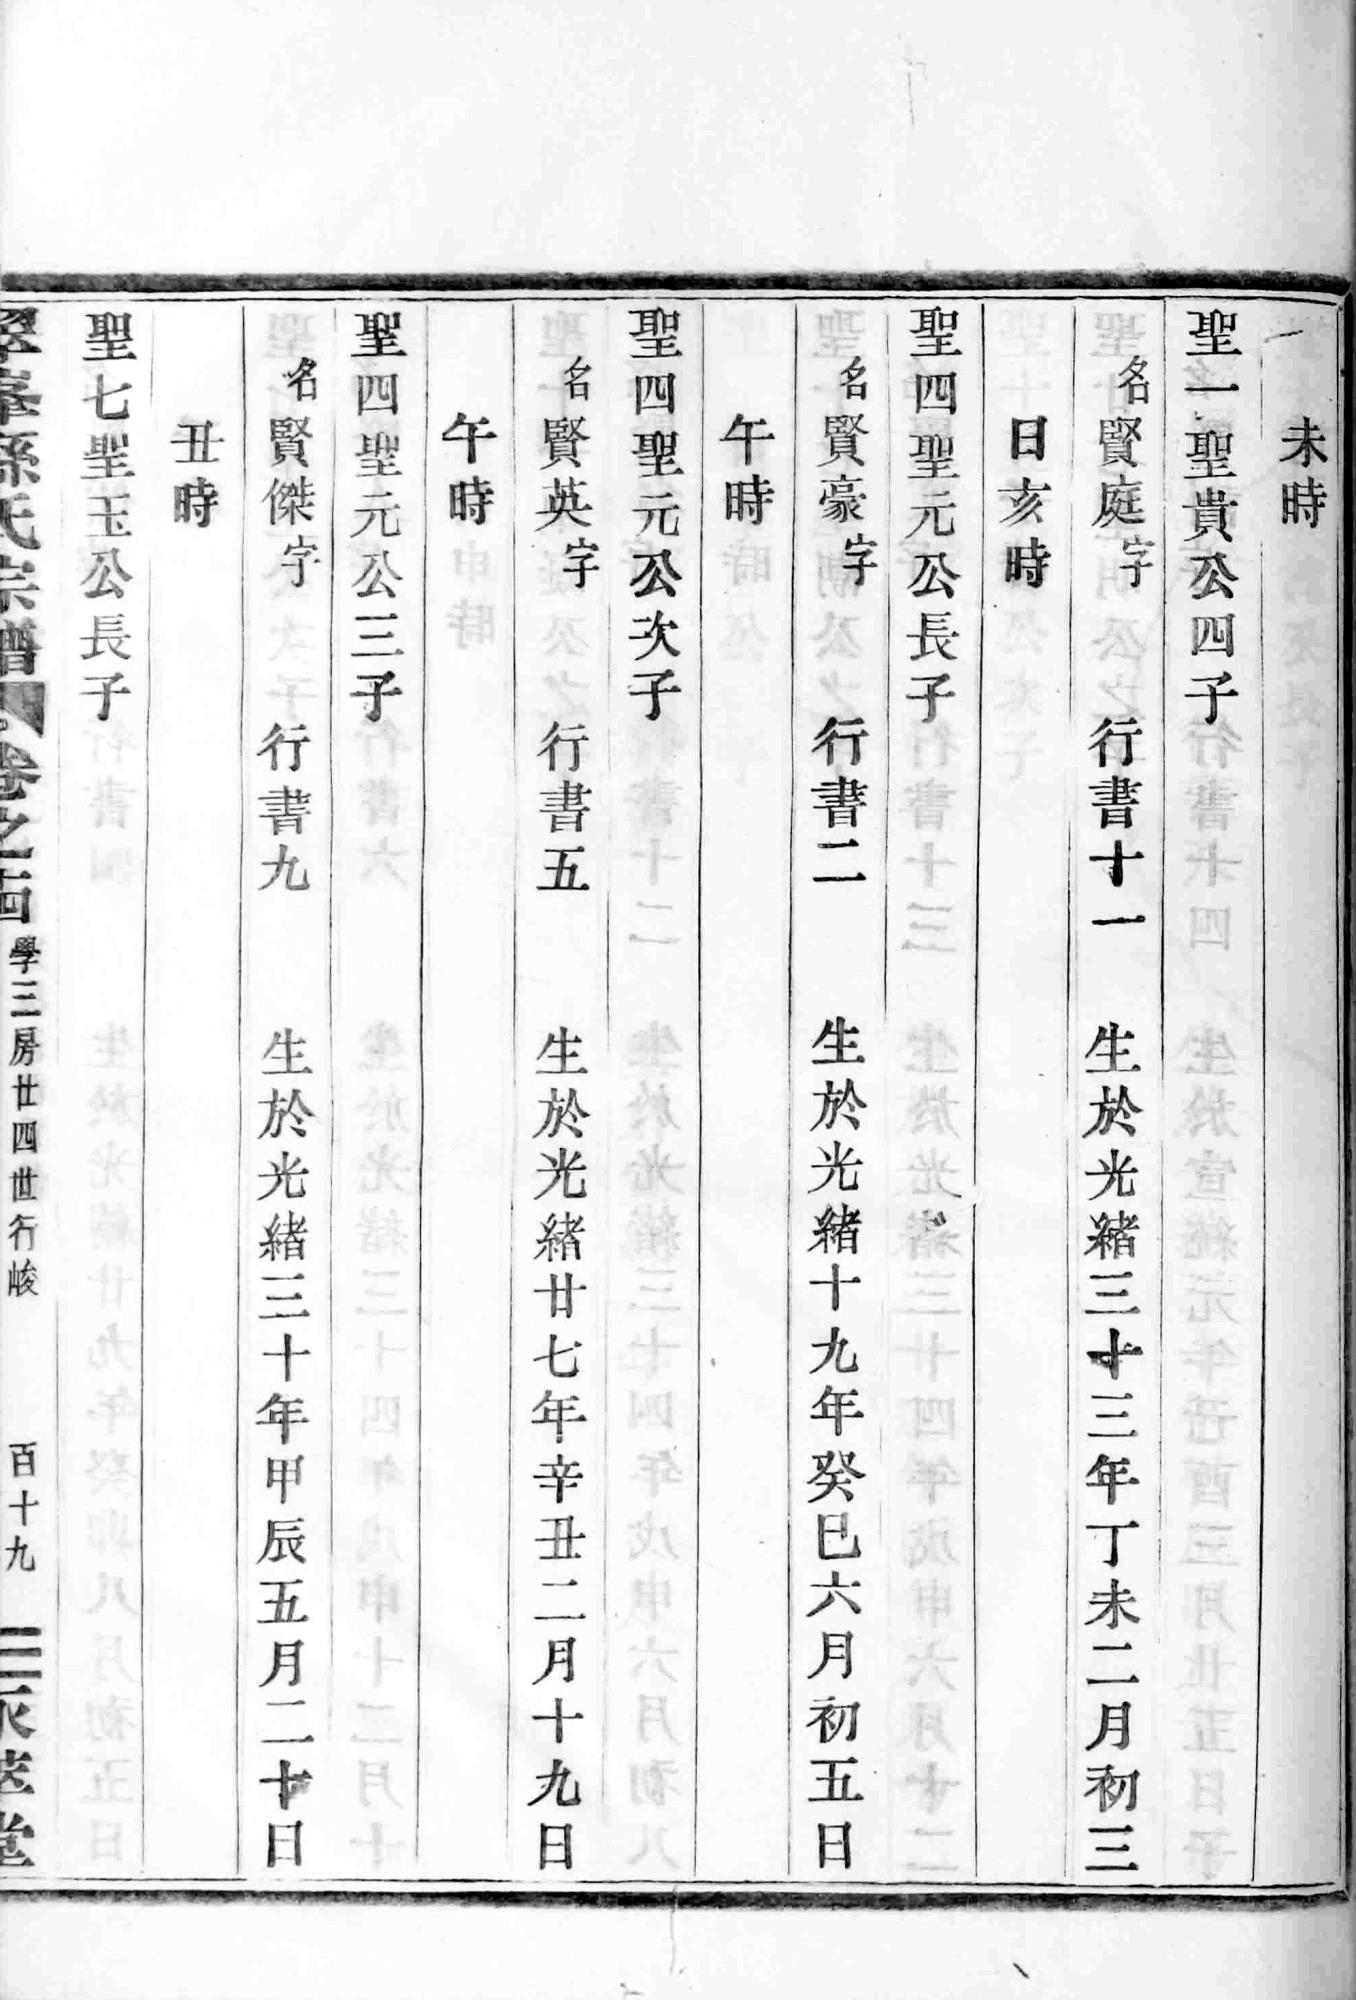 未時
聖一聖貴公四子
名賢庭字　行書十一　生於光緒三十三年丁未二月初三
日亥時
聖四聖元公長子
名賢豪字　行書二　生於光緒十九年癸巳六月初五日
午時
聖四聖元公次子
名賢英字　行書五　生於光緒廿七年辛丑二月十九日
午時
聖四聖元公三子
名賢傑字　行書九　生於光緒三十年甲辰五月二十日
丑時
聖七聖玉公長子
峯孫氏宗譜　卷之十四　學三房廿四世行峻　百十九　三永萃堂